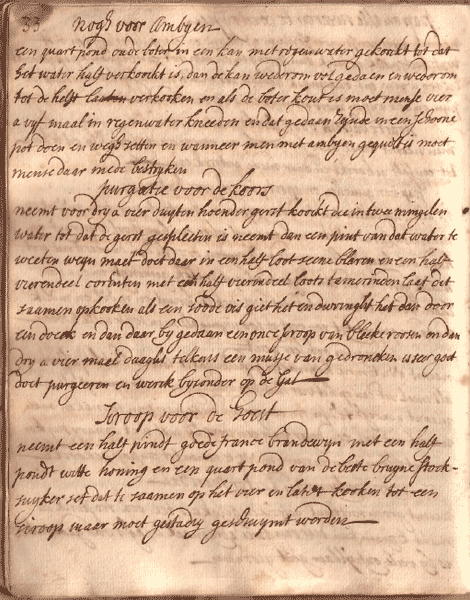 33 Nogh voor Ambyen
een quart pond oude boter in een kan met regenwater gekookt tot dat
het water half verkookt is, dan de kan wederom vol gedaen en wederom
tot de helft verkooken en als de boter kout is moet mense vier
a vyf maal in regenwater kneeden en dat gedaan zijnde in een schoone
pot doen en wegh setten en wanneer men met ambyen gequelt is moet
mense daar mede bestryken
purgatie voor de koors
neemt voor dry a vier duyten hoender gerst kookt die in twee mingelen
water tot dat de gerst gespleeten is neemt dan een pint van dat water te
weeten weyn maet doet daar in een half loot seene blaren en een half
vierendeel corinten met een half vierendeel loots temorinden laet dit
saamen opkooken als een soode vis giet het en dwringht het dan door
een doeck en dan daar by gedaan een once siroop van bleeke roosen en dan
dry a vier mael daaghs telkens een mutsje van gedroncken is seer goet
doet purgeeren en werck byzonder op de Gal
Siroop voor de Hoest
neemt een half pindt goede france brandewyn met een half
pondt witte honing en een quart pond van de beste bruyne stock-
suyker set dat te saamen op het vier en latet kooken tot een
siroop maar moet gestadig geschuymt worden